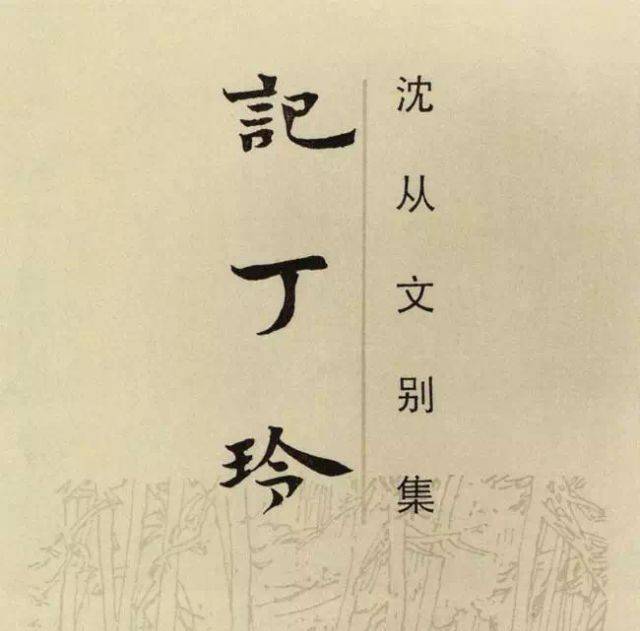 沈从文别集
記丁玲